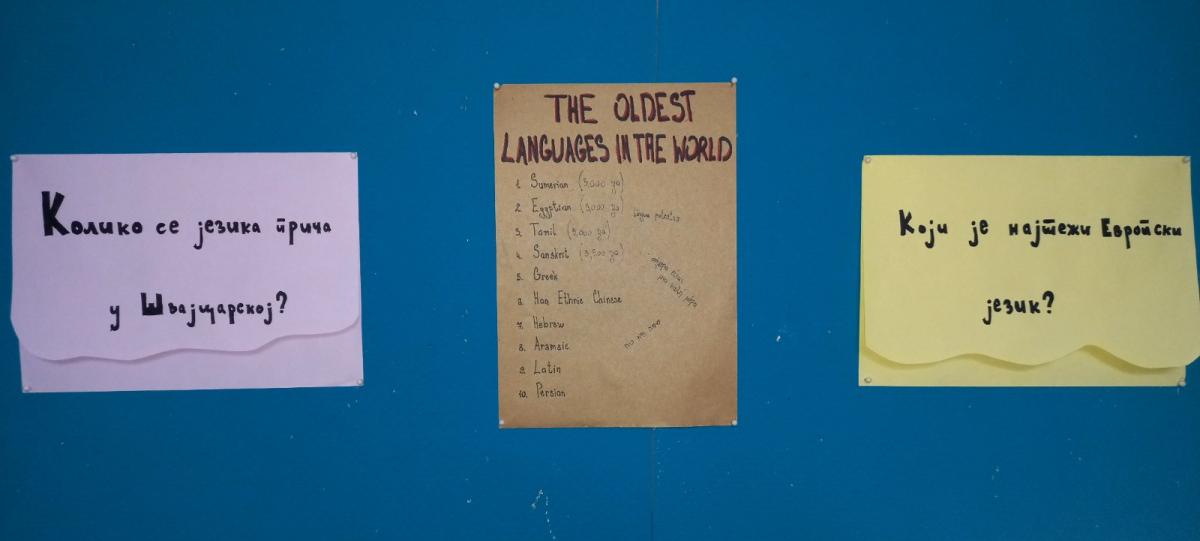 Колико се језика прича
у Швајцарској?
THE OLDEST
LANGUAGES IN THE WORLD
1. Sumerian (5,000 ya)
2. Egyptian (5,000 ya)
3. Tamil (5,000 ya)
4. Sanskrit (3,500 ya)
5. Greek
6. Han Ethnic Chinese
7. Hebrew
8. Aramaic
9. Latin
10. Persian
Који је најтежи Европски
језик?